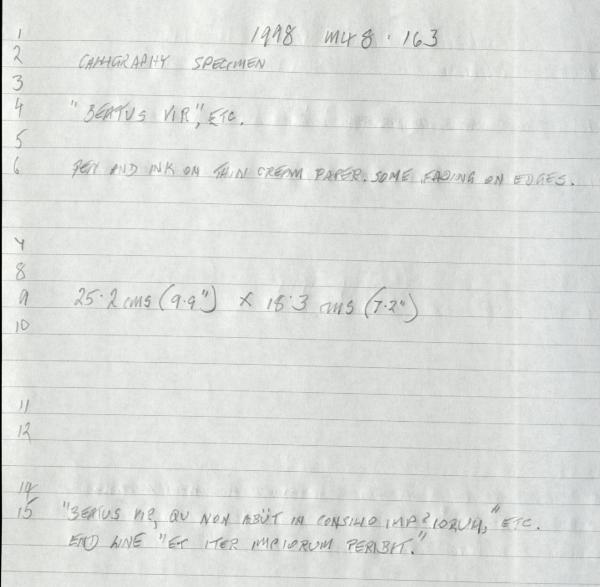 1998 MY8.163
1
2 CALLIGRAPHY SPECIMEN
3
4 "BEATUS VIR", ETC.
5
6 PEN AND INK ON THIN CREAM PAPER. SOME FADING ON EDGES.
7
8
9 25.2 cms (9.9") X 18.3 cms (7.2")
10
11
12
14
15 "BEATUS VIR, QU NON ABÜT IN CONSILIO IMPIORUM," ETC.
END LINE "ET ITER IMPIORUM PERIBIT."